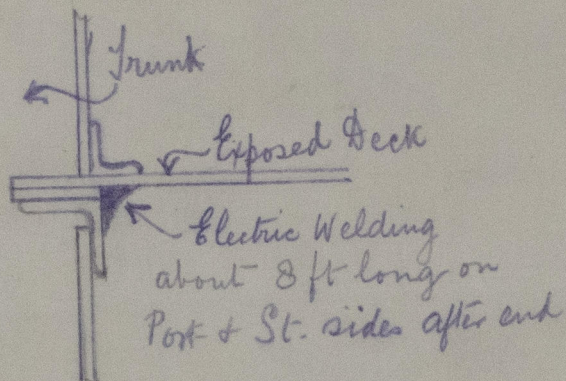 Trunk
Exposed Deck
Electric Welding
about 8 ft long on
Port & St. sides after end